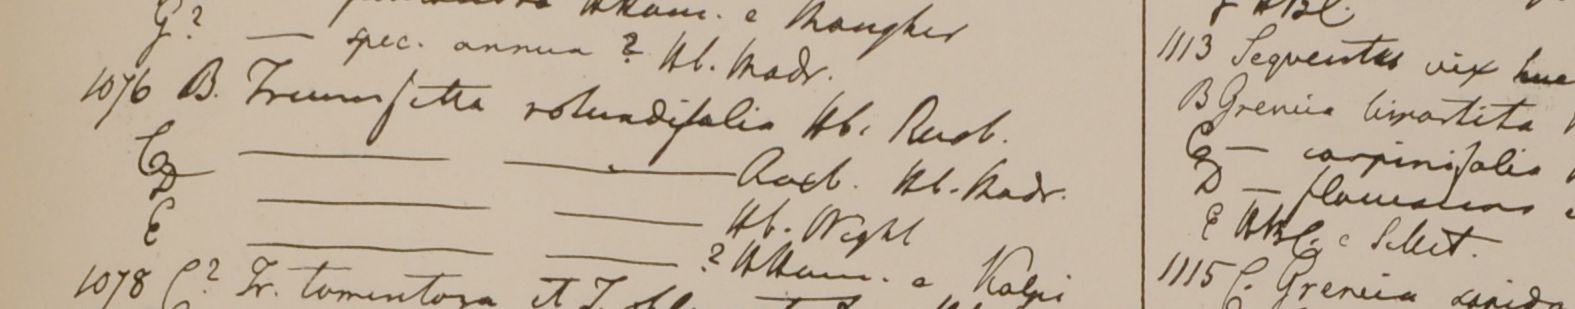 HHam. e Mongher
G? — spec. annua? Hb. Madr.
1076 B. Triumfetta rotundifolia Hb. Roxb.
C — — Roxb. Hb. Madr.
D — — Hb. Wight
E — — ? HHam. e Kalpi
1078 C? Tr. tomentosa et T.
& HBC.
1113 Sequentes vix huc
B Grewia bipartita
C — carpinifolia
D — flavescens
E HBC. e Silhet.
1115 C. Grewia sapida